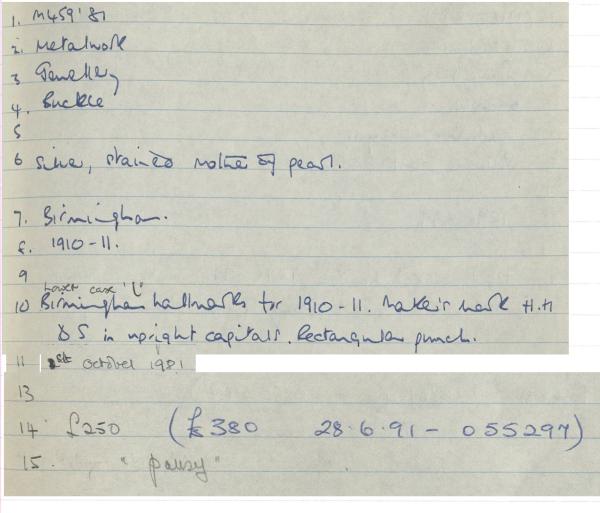 1. M459'81
2. Metalwork
3 Jewellery
4. Buckle
5
6 Silver, stained mother of pearl.
7. Birmingham.
8. 1910-11.
9
Lower case 'l'
10 Birmingham hallmarks for 1910-11. Maker's mark H.H
& S in upright capitals. Rectangular punch.
11 October 1981
13
14. £250 (£380 28.6.91 - 055297)
15. "pansy"